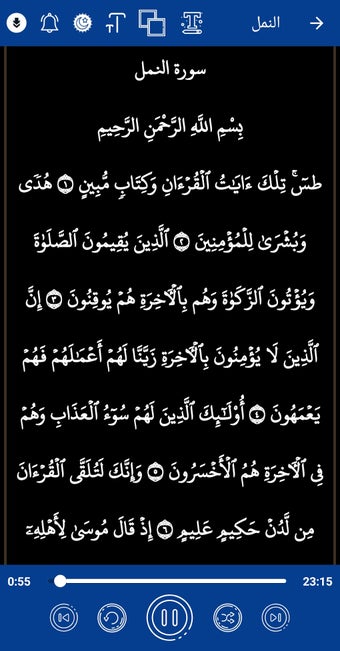 النمل
سورة النمل
بِسْمِ اللَّهِ الرَّحْمَنِ الرَّحِيمِ
طسٓۚ تِلۡكَ ءَايَٰتُ ٱلۡقُرۡءَانِ وَكِتَابٖ مُّبِينٍ ١ هُدٗى
وَبُشۡرَىٰ لِلۡمُؤۡمِنِينَ ٢ ٱلَّذِينَ يُقِيمُونَ ٱلصَّلَوٰةَ
وَيُؤۡتُونَ ٱلزَّكَوٰةَ وَهُم بِٱلۡأٓخِرَةِ هُمۡ يُوقِنُونَ ٣ إِنَّ
ٱلَّذِينَ لَا يُؤۡمِنُونَ بِٱلۡأٓخِرَةِ زَيَّنَّا لَهُمۡ أَعۡمَٰلَهُمۡ فَهُمۡ
يَعۡمَهُونَ ٤ أُوْلَٰٓئِكَ ٱلَّذِينَ لَهُمۡ سُوٓءُ ٱلۡعَذَابِ وَهُمۡ
فِي ٱلۡأٓخِرَةِ هُمُ ٱلۡأَخۡسَرُونَ ٥ وَإِنَّكَ لَتُلَقَّى ٱلۡقُرۡءَانَ
مِن لَّدُنۡ حَكِيمٍ عَلِيمٍ ٦ إِذۡ قَالَ مُوسَىٰ لِأَهۡلِهِۦٓ
0:55 23:15